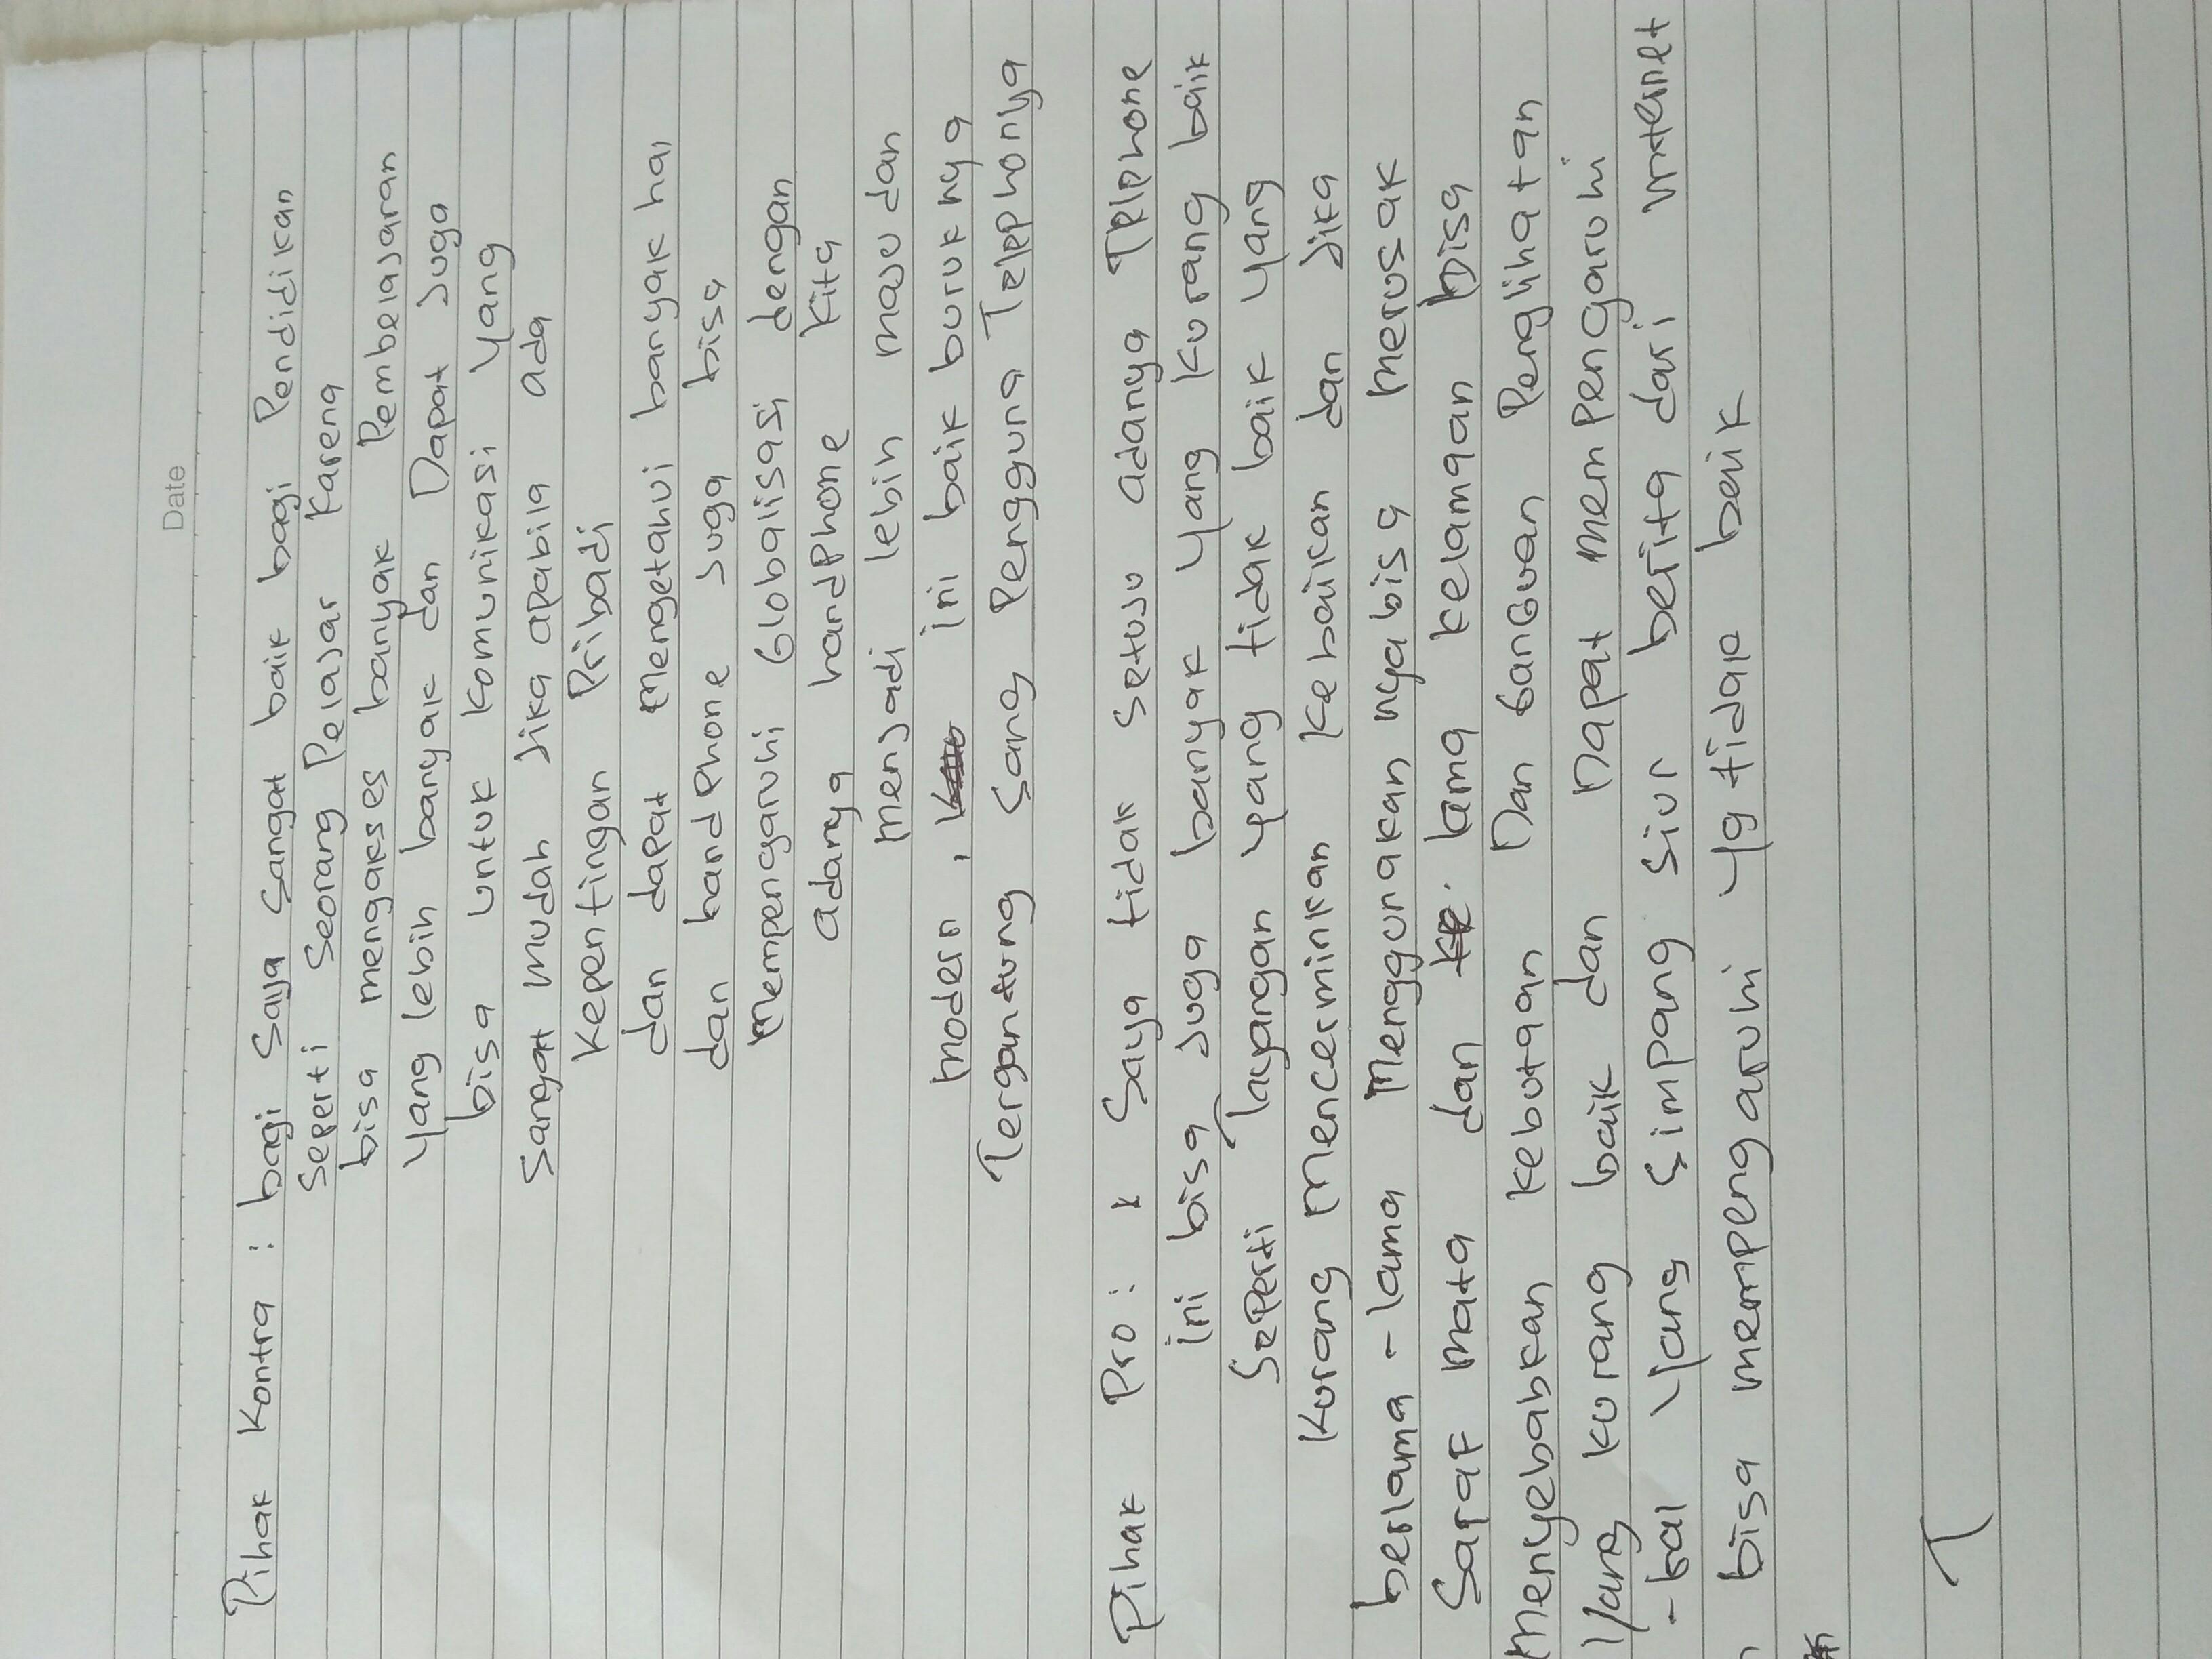 Date
Pihak Kontra : bagi saya sangat baik bagi Pendidikan
seperti seorang Pelajar Karena
bisa mengakses banyak Pembelajaran
yang lebih banyak dan Dapat Juga
bisa untuk Komunikasi yang
sangat mudah Jika apabila ada
Kepentingan Pribadi
dan dapat Mengetahui banyak hal
dan handphone Juga bisa
Mempengaruhi Globalisasi dengan
adanya handphone Kita
Menjadi lebih maju dan
modern , ini baik buruknya
Tergantung Sang Pengguna Telephonya
Pihak Pro : Saya tidak setuju adanya Telphone
ini bisa Juga banyak yang Kurang baik
seperti Tayangan yang tidak baik yang
Kurang Mencerminkan Kebaikan dan Jika
berlama - lama Menggunakan nya bisa Merusak
Saraf Mata dan lama kelamaan bisa
Menyebabkan kebutaan Dan Gangguan Penglihatan
yang Kurang baik dan Dapat Mempengaruhi
- hal yang simpang siur berita dari internet
bisa mempengaruhi yg tidak baik